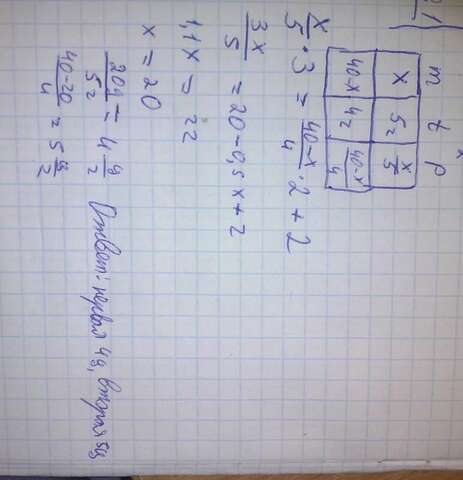 m t p
x 5ч x/5
40-x 4ч 40-x/4
x/5 · 3 = 40-x/4 · 2 + 2
3x/5 = 20 - 0,5x + 2
1,1x = 22
x = 20
20д/5ч = 4 д/ч
40-20/4 = 5 д/ч Ответ: первая 4д, вторая 5д